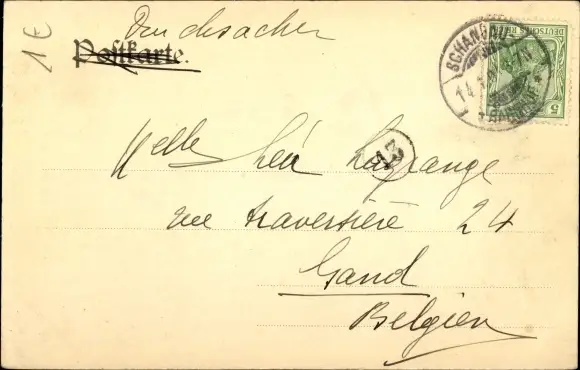 1€
Drucksachen
Postkarte.
SCHANDAU
14
DEUTSCHES REICH
5
13
Melle Léa Lagrange
rue traversière 24
Gand
Belgien